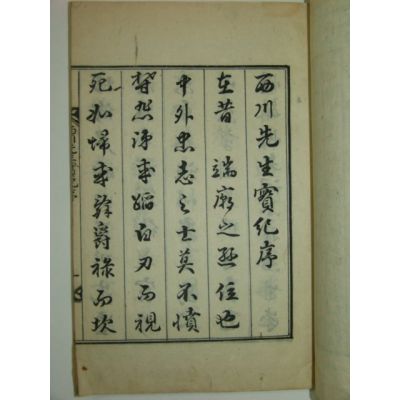 西川先生實紀序
在昔 端廟之遜位也
中外忠志之士莫不憤
或蹈白刃而視
死如歸或辭爵祿而坎